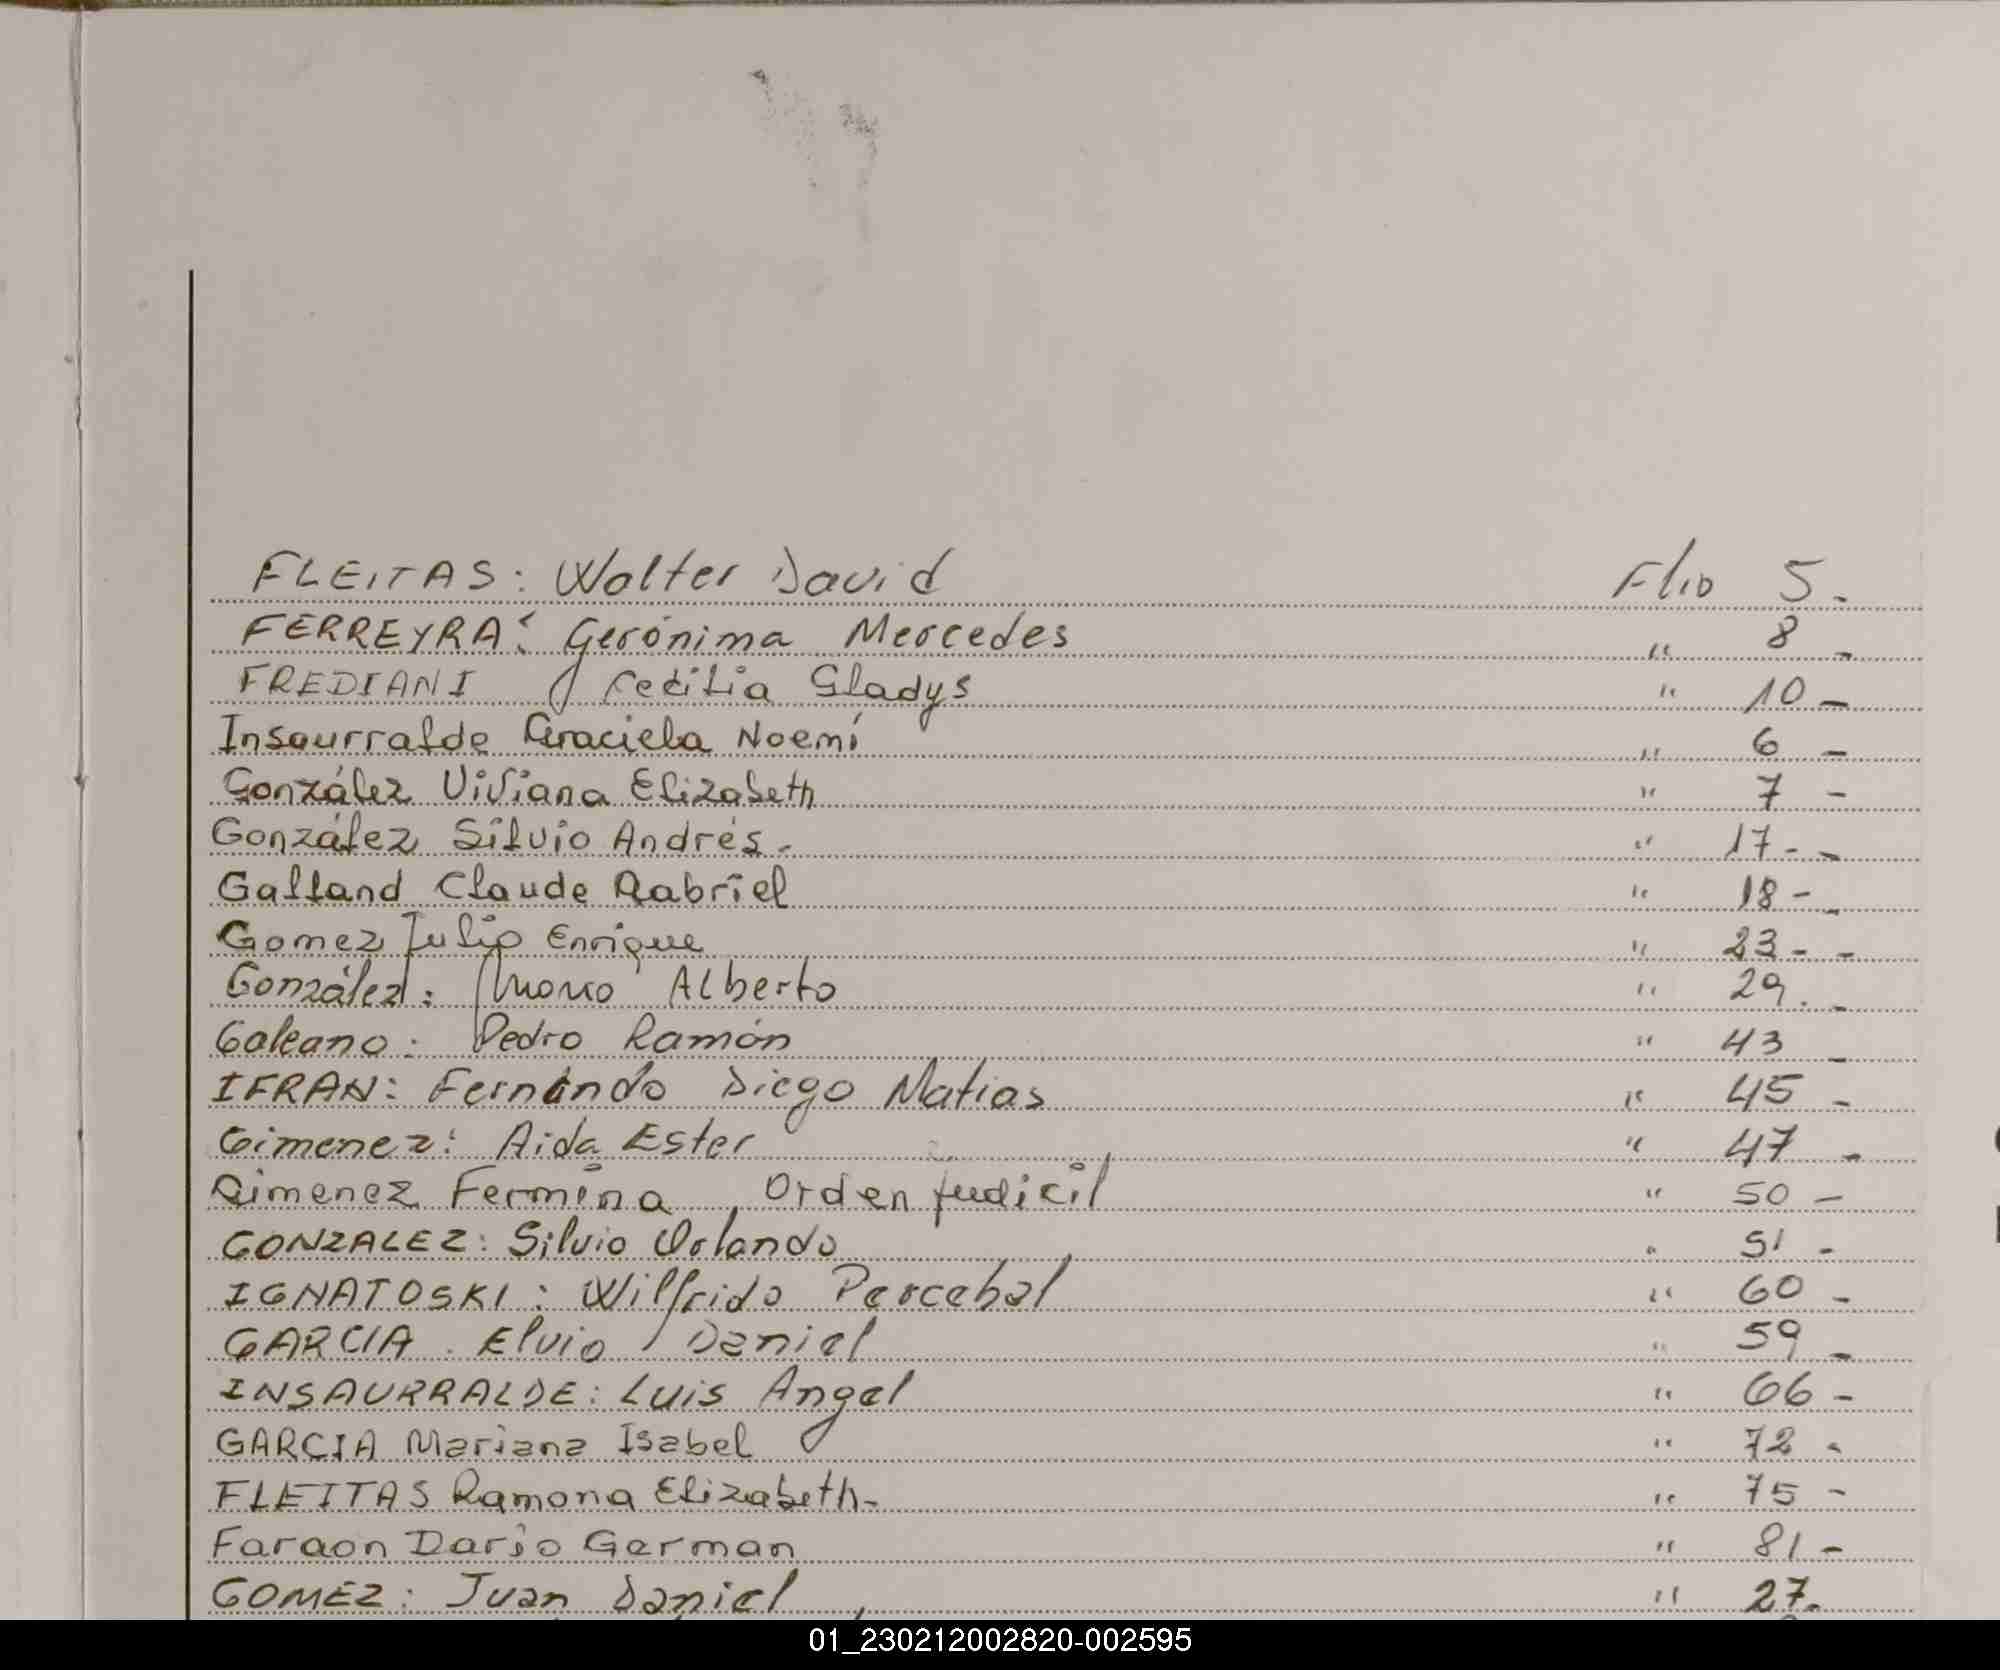 FLEITAS: Walter David Flio 5.
FERREYRA: Gerónima Mercedes " 8 -
FREDIANI Cecilia Gladys " 10 -
Insaurralde Graciela Noemí " 6 -
González Viviana Elizabeth " 7 -
González Silvio Andrés. " 17 - -
Galland Claude Gabriel " 18 - -
Gomez Julio Enrique " 23 - -
González: Mario Alberto " 29. -
Galeano: Pedro Ramón " 43 -
IFRAN: Fernando Diego Matias " 45 -
Gimenez: Aida Ester " 47 -
Gimenez Fermina, Orden judicil " 50 -
GONZALEZ: Silvio Orlando " 51 -
IGNATOSKI: Wilfrido Percebal " 60 -
GARCIA. Elvio Daniel " 59 -
INSAURRALDE: Luis Angel " 66 -
GARCIA Mariana Isabel " 72 -
FLEITAS Ramona Elizabeth- " 75 -
Faraon Dario German " 81 -
GOMEZ: Juan Daniel " 27.
01_230212002820-002595